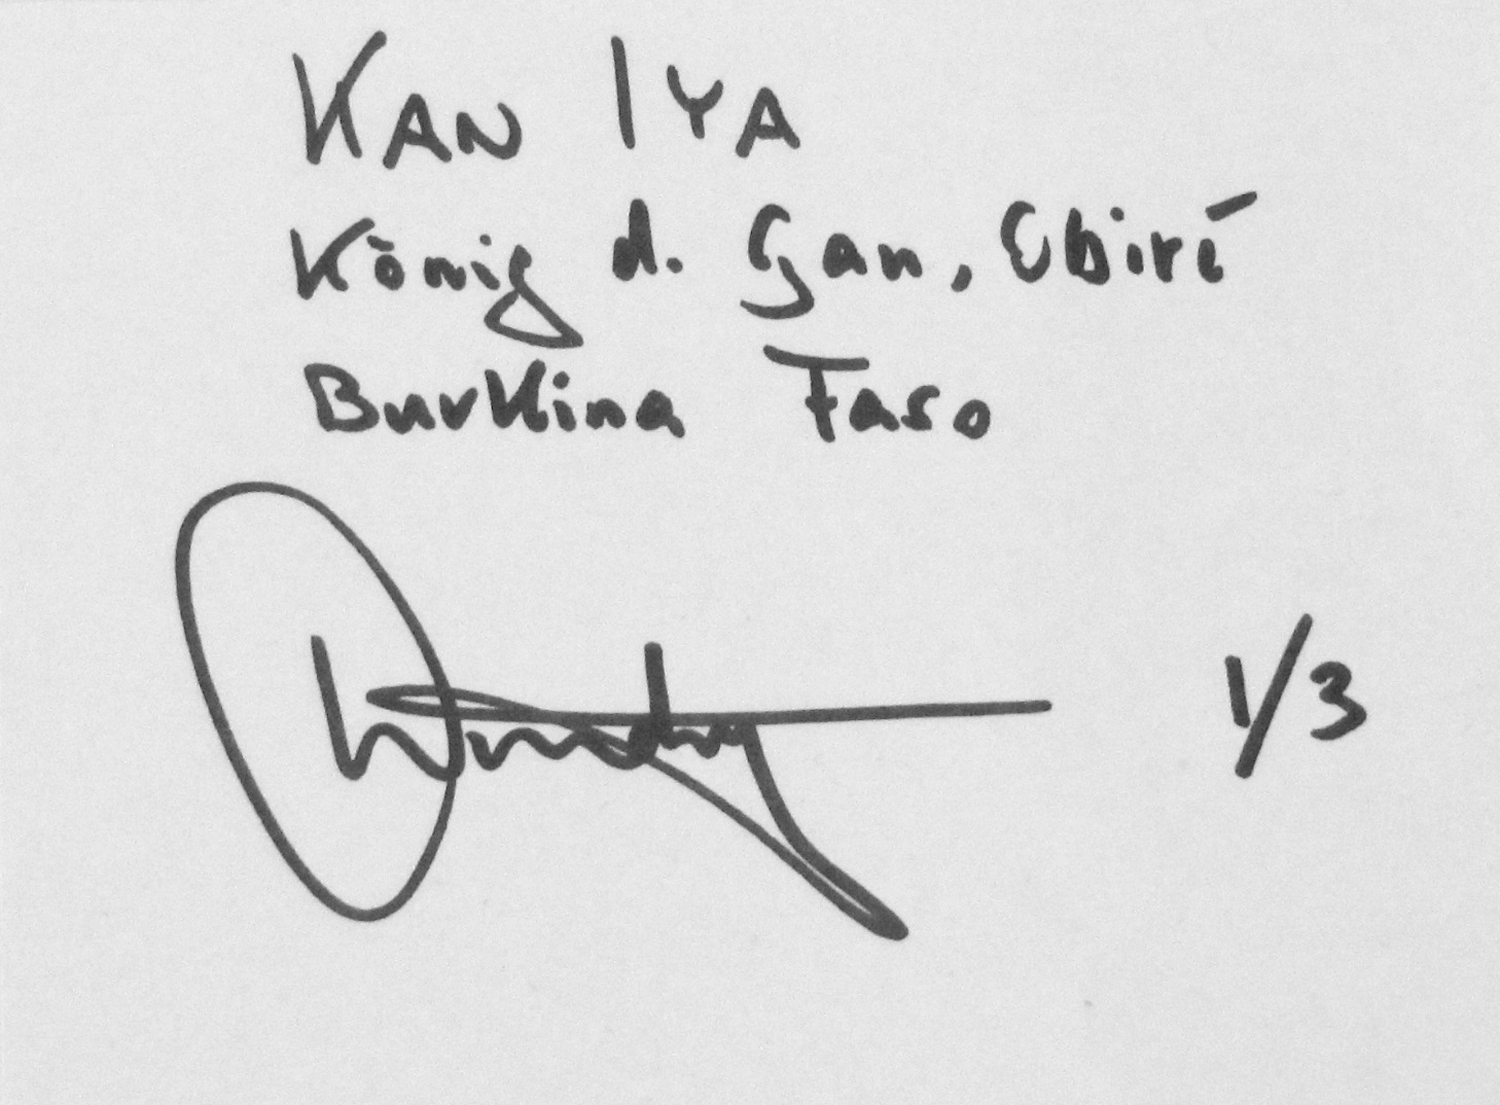 KAN IYA
König d. Gan, Obiré
Burkina Faso
1/3